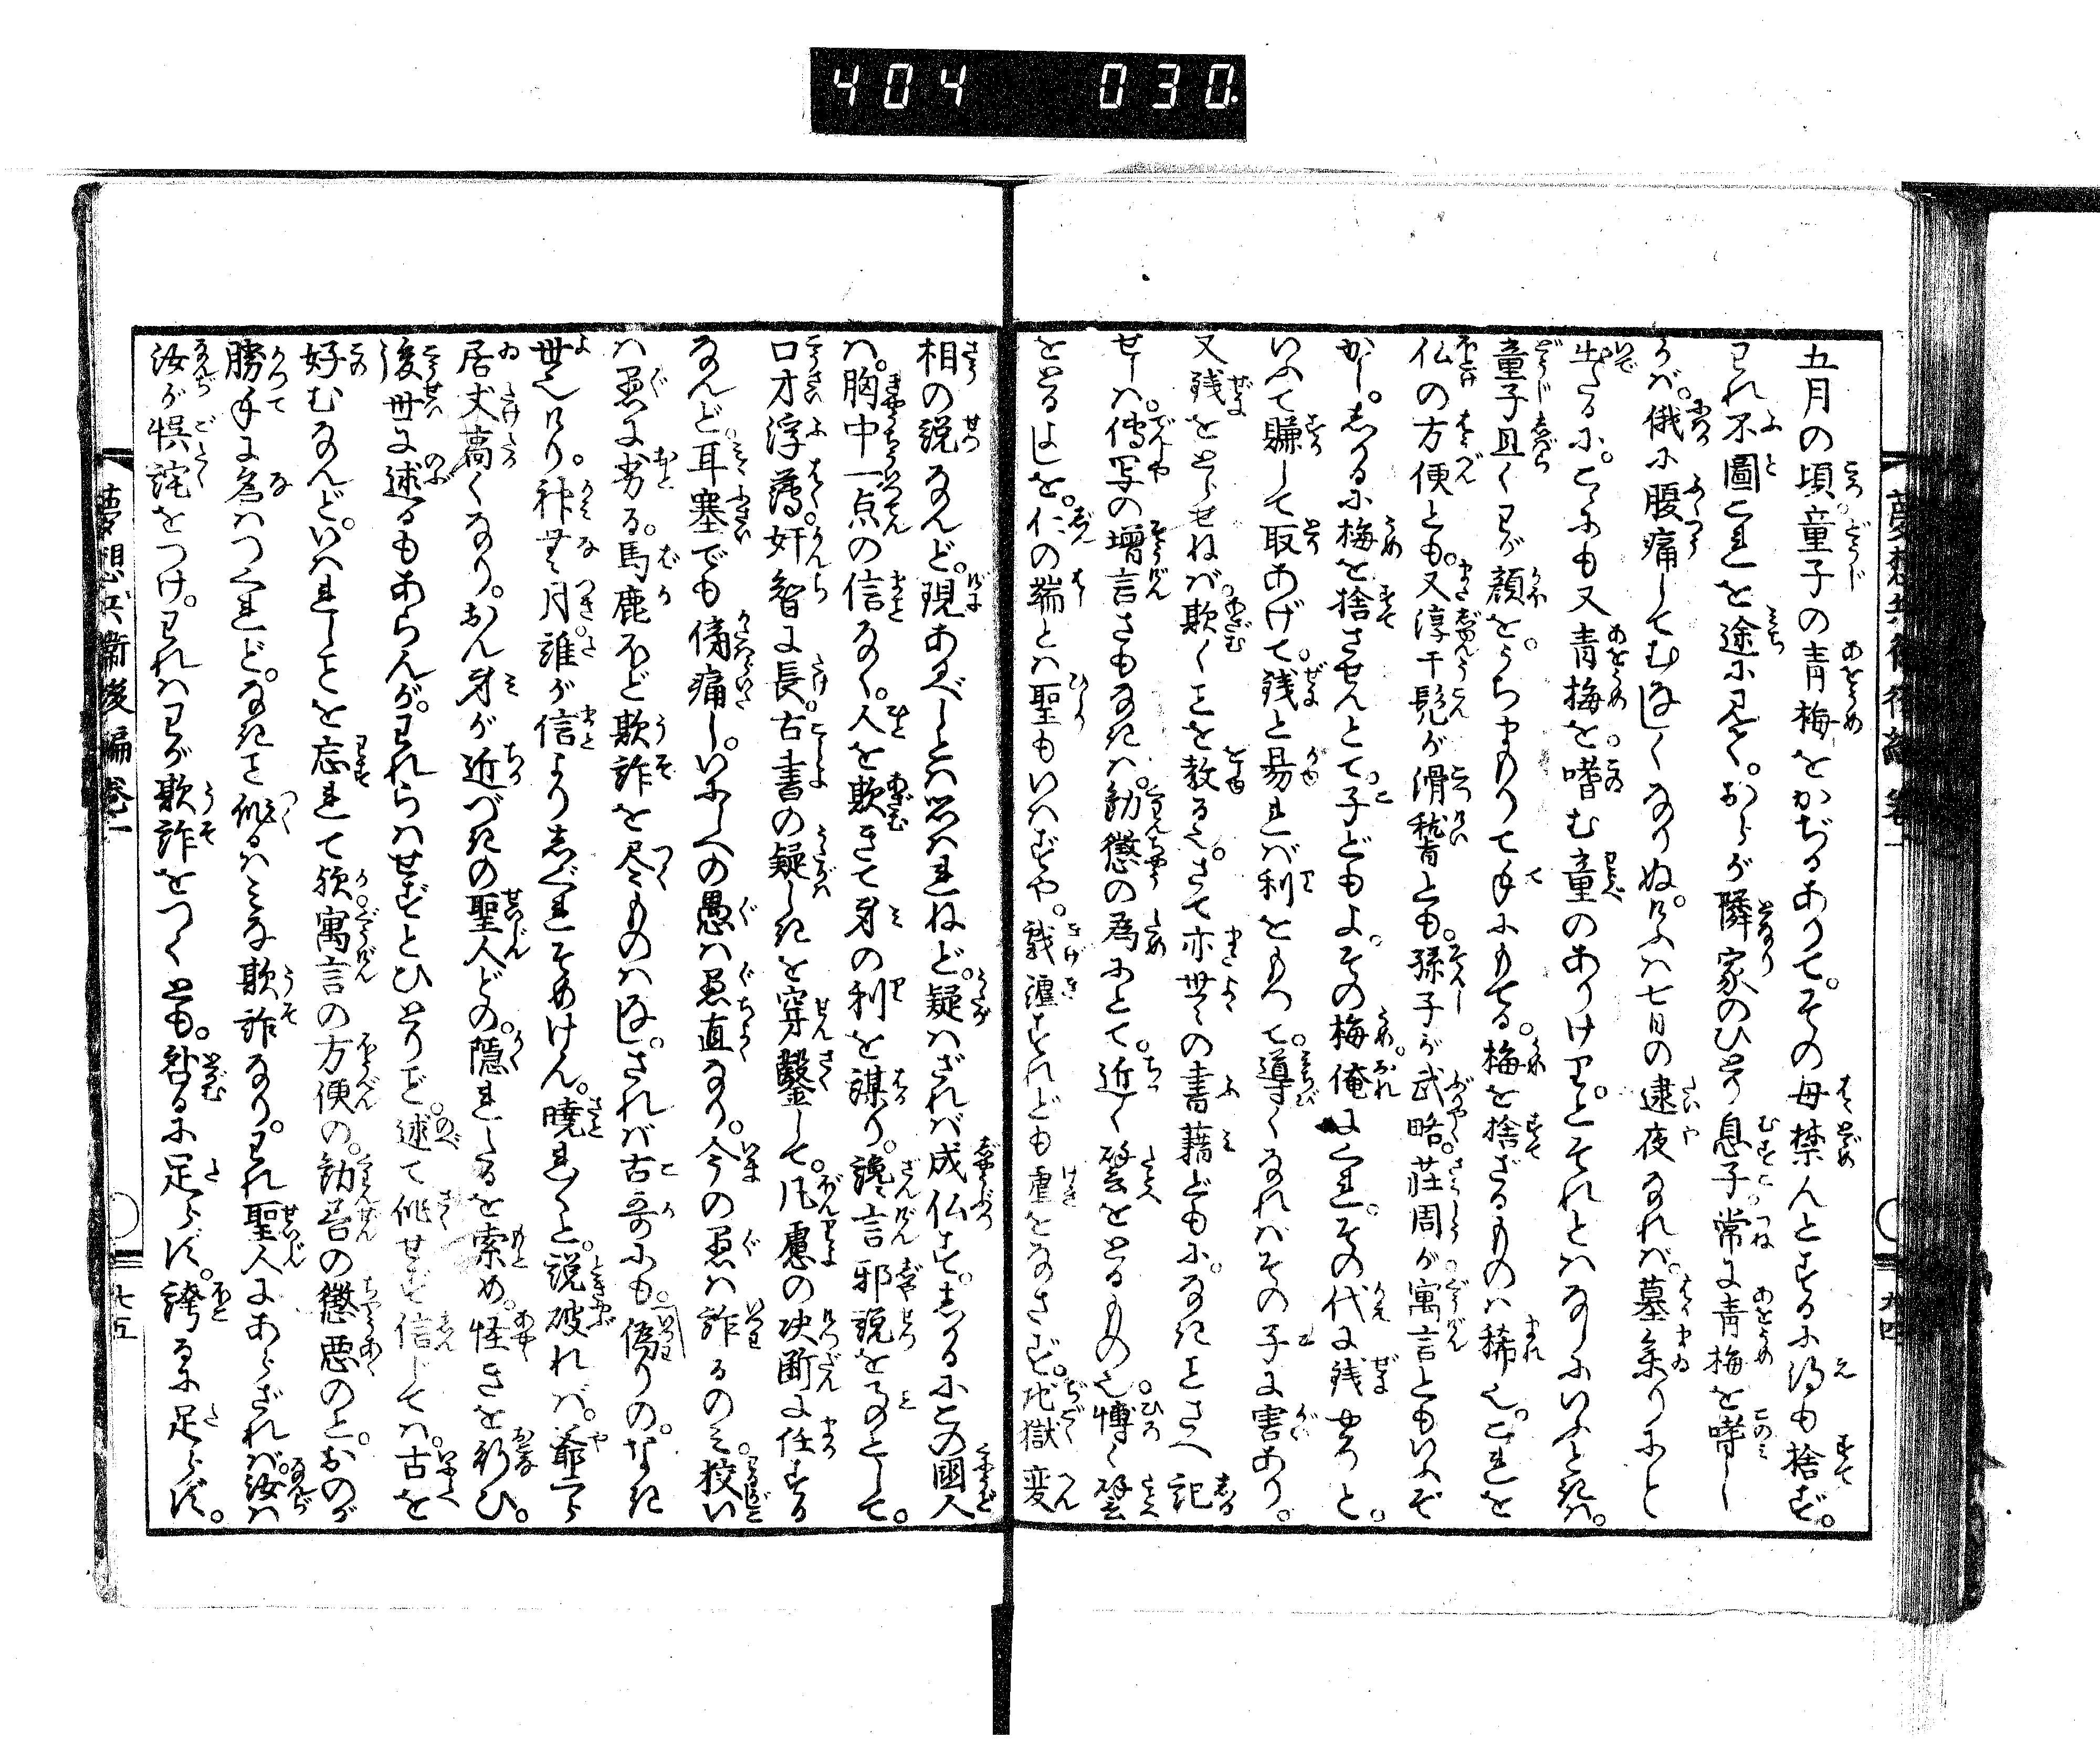 404 030.
夢想兵衛後編巻一
五月の頃童子の青梅をかぢるありて。その母禁んとするに得も捨ず。
われ不圖これを途に見て。おらが隣家のひとり息子。常に青梅を嗜し
が。俄に腹痛してむなしくなりぬ。けふは七日の逮夜なれば。墓参りにと
出たるに。こゝにも又青梅を。嗜む童のありけり。とそれとはなしにいふときは。
童子且くわが顔を。うちまもりて手にもてる。梅を捨ざるものは稀也。これを
仏の方便とも。又淳于髡が滑稽とも。孫子が武略。荘周が寓言ともいふぞ
かし。しかるに梅を捨させんとて。子どもよ。その梅俺にくれ。その代に銭やろと。
いふて賺して取あげて。銭と易れば利をもつて。導くなればその子に害あり。
又銭をとらせねば。欺くことを教る也。さて亦世々の書籍どもに。なきことさへ記
せしは。傳写の増言さもなきは。勧懲の為にとて。近く譬をとるもの也。博く譬
をとるよしを。仁の端とは聖もいはずや。戯謔すれども虐をなさず。地獄変
九四
相の説なんど。現あるべしとは思はれねど。疑はざれば成仏す。しかるにこの國人
は。胸中一点の信なく。人を欺きて身の利を謀り。讒言邪説をことゝして。
口才浮薄。奸智に長。古書の疑しきを穿鑿して。凡慮の决断に任する
なんど。耳塞でも傍痛し。いにしへの愚は愚直なり。今の愚は詐るのミ。狡い
は愚に劣る。馬鹿ほど欺詐を尽ものはなし。されば古哥にも。偽りの。なき
世也けり。神無月。誰が信より。しぐれそめけん。暁れしと。説破れば。爺々
居丈高くなり。おん身が近づきの聖人どの。隠れたるを索め。怪きを行ひ。
後世に述るもあらんが。われらはせずとひとりごと。述て作せず信じては。古を
好むなんど。いはれしことを忘れて歟。寓言の方便の。勧善の懲悪のと。おのが
勝手に為はつくれど。なきこと作るはミな欺詐なり。われ聖人にあらざれば。汝は
汝が悞詫をつけ。われはわが欺詐をつくとも。咎るに足らず。誇るに足らず。
夢想兵衛後編巻一
七五